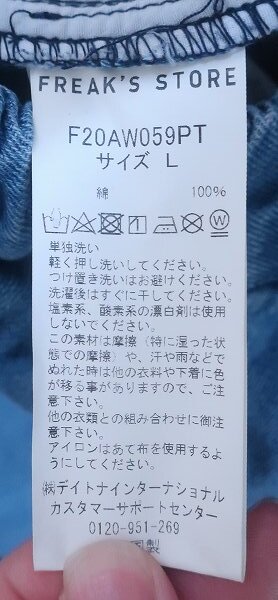 FREAK'S STORE
F20AW059PT
サイズ L
綿 100%
単独洗い
軽く押し洗いしてください。
つけ置き洗いはお避けください。
洗濯後はすぐに干してください。
塩素系、酸素系の漂白剤は使用
しないでください。
この素材は摩擦（特に湿った状
態での摩擦）や、汗や雨などで
ぬれた時は他の衣料や下着に色
が移る事がありますので、ご注
意下さい。
他の衣類との組み合わせに御注
意下さい。
アイロンはあて布を使用するよ
うにしてください。
㈱デイトナインターナショナル
カスタマーサポートセンター
0120-951-269
国製